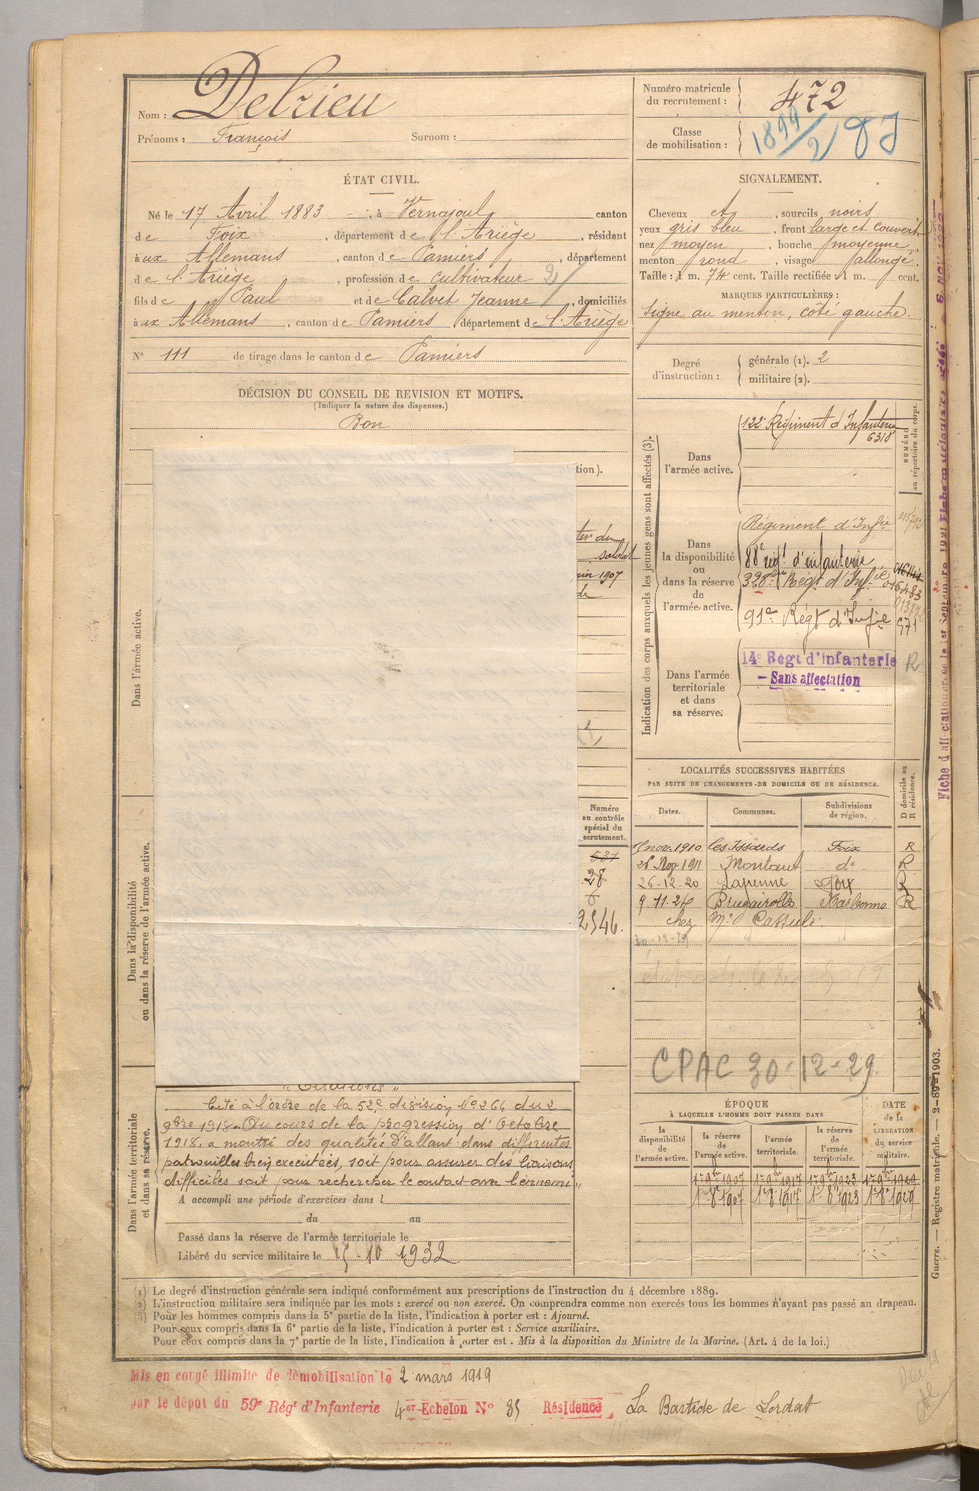 Nom : Delrieu
Prénoms : François Surnom :
ÉTAT CIVIL.
Né le 17 Avril 1883, à Vernajoul canton
de Foix, département de l'Ariège, résidant
à aux Allemans, canton de Pamiers, département
de l'Ariège, profession de cultivateur
fils de Paul et de Calvet Jeanne, domiciliés
à aux Allemans, canton de Pamiers département de l'Ariège
N° 111 de tirage dans le canton de Pamiers
DÉCISION DU CONSEIL DE REVISION ET MOTIFS.
(Indiquer la nature des dispenses.)
Bon
tion).
soldat
juin 1907
Dans l'armée active.
Dans la disponibilité
ou dans la réserve de l'armée active.
Numéro
au contrôle
spécial du
recrutement.
537
28
6
2546.
Dans l'armée territoriale
et dans sa réserve.
"Citations"
Cité à l'ordre de la 52e division No 264 du 2
9bre 1918. Au cours de la progression d'Octobre
1918, a montré des qualités d'allant dans différentes
patrouilles bien executées, soit pour assurer des liaisons
difficiles soit pour rechercher le contact avec l'ennemi"
A accompli une période d'exercices dans l
du au
Passé dans la réserve de l'armée territoriale le
Libéré du service militaire le 15-10 1932
Numéro matricule
du recrutement :
472
Classe
de mobilisation :
1899/2
SIGNALEMENT.
Cheveux et, sourcils noirs
yeux gris bleu, front large et couvert
nez moyen, bouche moyenne,
menton rond, visage allongé.
Taille : 1 m. 74 cent. Taille rectifiée : 1 m. cent.
MARQUES PARTICULIÈRES :
Signe au menton, côté gauche.
Degré
d'instruction :
générale (1). 2
militaire (2).
Indication des corps auxquels les jeunes gens sont affectés (3).
NUMÉRO
au répertoire du corps.
Dans
l'armée active.
122e Régiment d'Infanterie
6318
Dans
la disponibilité
ou
dans la réserve
de
l'armée active.
Régiment d'Infie
88e régt d'infanterie
Régt d'Infie
91e Régt d'Infie
971
Dans l'armée
territoriale
et dans
sa réserve.
14e Régt d'infanterie
- Sans affectation
R
LOCALITÉS SUCCESSIVES HABITÉES
PAR SUITE DE CHANGEMENTS DE DOMICILE OU DE RÉSIDENCE.
D domicile ou
R résidence.
Dates. Communes. Subdivisions
de région.
nov. 1910 les Issards Foix R
26 Nov 1911 Montaut do R
26-12-20 Lapenne Foix R
9.11.26 Brugairolles Narbonne R
chez
CPAC 30-12-29.
ÉPOQUE
À LAQUELLE L'HOMME DOIT PASSER DANS
DATE
de la
LIBÉRATION
du service
militaire.
la
disponibilité
de l'armée active.
la réserve
de
l'armée active.
l'armée
territoriale.
la réserve
de
l'armée
territoriale.
1er 9bre 1907 1er 9bre 1917 1er 9bre 1923 1er 9bre 1929
1er 8bre 1907 1er 8bre 1917 1er 8bre 1923 1er 8bre 1929
(1) Le degré d'instruction générale sera indiqué conformément aux prescriptions de l'instruction du 4 décembre 1889.
(2) L'instruction militaire sera indiquée par les mots : exercé ou non exercé. On comprendra comme non exercés tous les hommes n'ayant pas passé au drapeau.
(3) Pour les hommes compris dans la 5e partie de la liste, l'indication à porter est : Ajourné.
Pour ceux compris dans la 6e partie de la liste, l'indication à porter est : Service auxiliaire.
Pour ceux compris dans la 7e partie de la liste, l'indication à porter est. Mis à la disposition du Ministre de la Marine. (Art. 4 de la loi.)
Guerre. — Registre matricule. — 2-89-1903.
Mis en congé illimité de démobilisation le 2 mars 1919
par le dépôt du 59e Régt d'Infanterie 4e Echelon No 35 Résidence La Bastide de Lordat